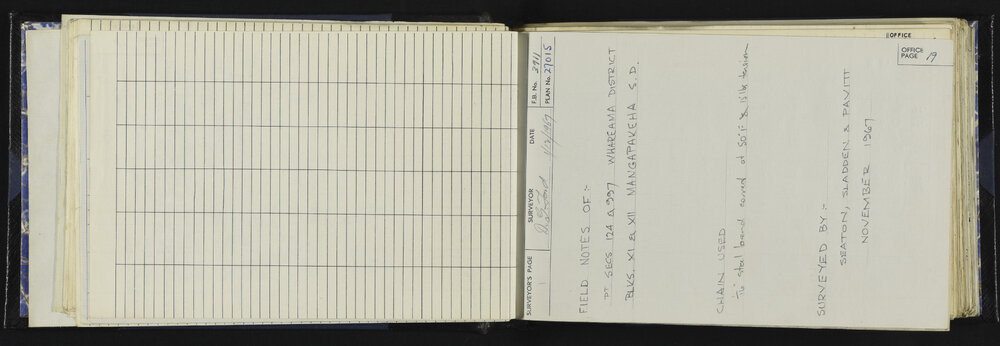 OFFICE
OFFICE PAGE 19
SURVEYOR'S PAGE 1
SURVEYOR
DATE 1/12/1967
F.B. No. 3711
PLAN No. 27015
FIELD NOTES OF :-
PT SECS 124 & 997 WHAREAMA DISTRICT
BLKS. XI & XII MANGAPAKEHA S.D.
CHAIN USED
steel band correct at 50°F & 15 lb tension
SURVEYED BY :-
SEATON, SLADDEN & PAVITT
NOVEMBER 1967